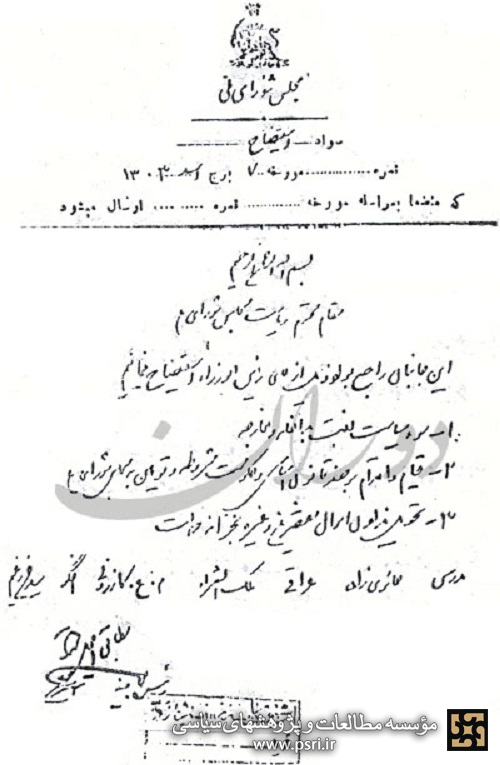 مجلس شورای ملی
سواد استیضاح
نمره ............ مورخه ۷ برج اسد ۱۳۰۳
که منضما بمراسله مورخه ............ نمره ............ ارسال میشود
بسم الله الرحمن الرحیم
مقام محترم ریاست مجلس شورای
این جانبان راجع بمواد ذیل از آقای رئیس الوزراء استیضاح مینمائیم
۱- سوء سیاست نسبت بداخله و خارجه
۲- قیام و اقدام بر ضد قانون اساسی و حکومت مشروطه و توهین بمجلس شورای
۳- تحویل ندادن اموال مقصرین و غیره بخزانه دولت
مدرس حائری زاده عراقی ملک الشعراء کازرونی اخگر سید
مطابق
رئیس کابینه
دوران
مؤسسه مطالعات و پژوهشهای سیاسی
www.psri.ir